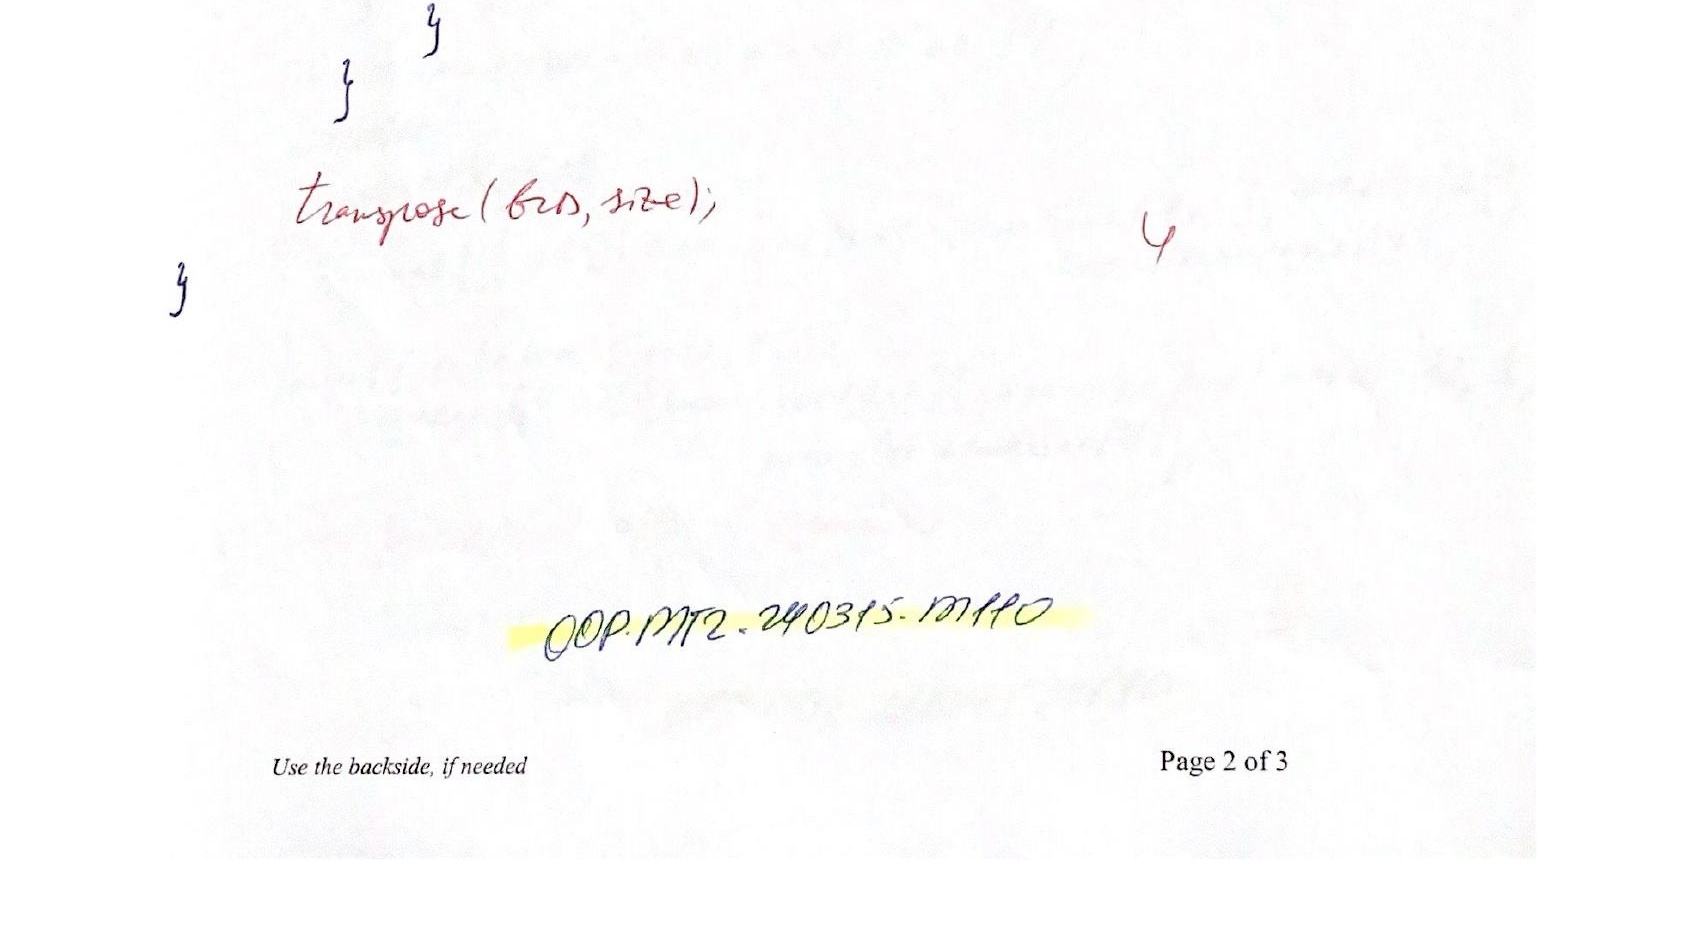 }
}
transpose(b2D, size);
4
}
OOP.MT2.240315.M110
Use the backside, if needed
Page 2 of 3